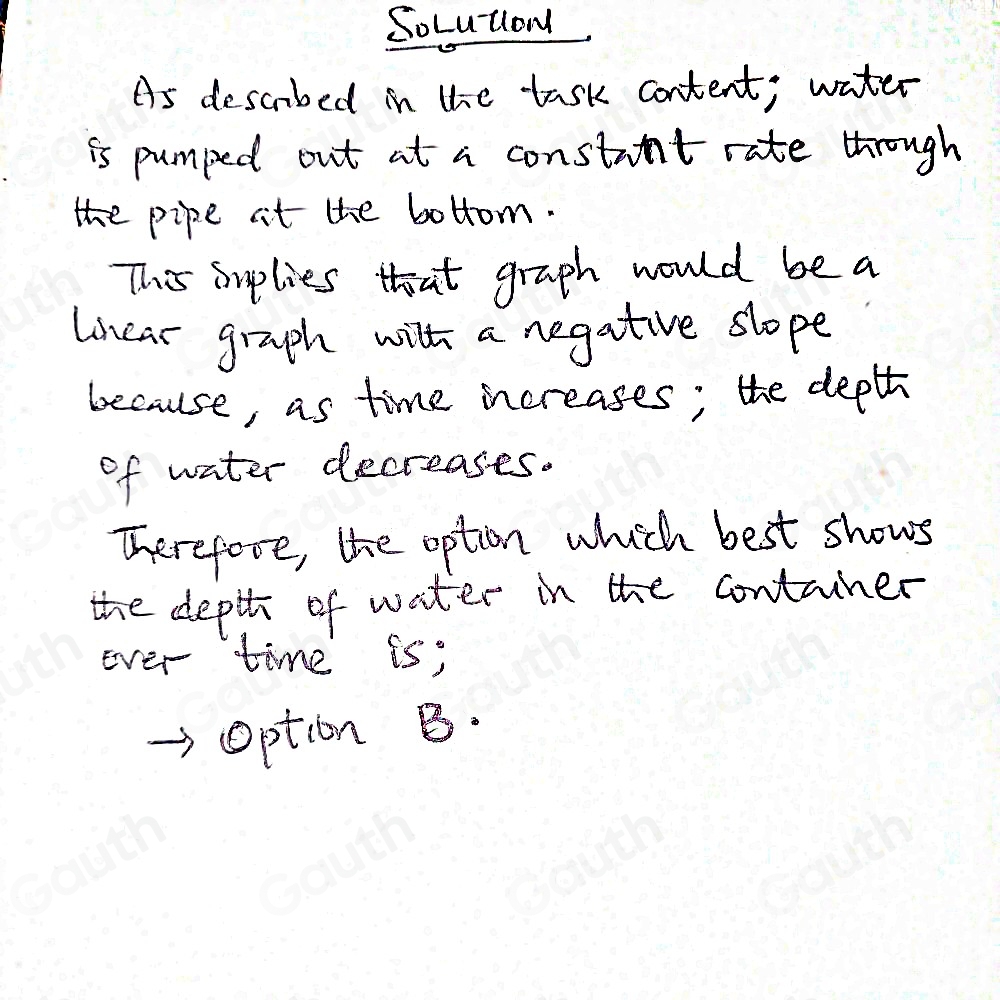 SOLUTION
As described in the task content; water
is pumped out at a constant rate through
the pipe at the bottom.
This implies that graph would be a
linear graph with a negative slope
because, as time increases; the depth
of water decreases.
Therefore, the option which best shows
the depth of water in the container
over time is;
→ Option B.
Gauth